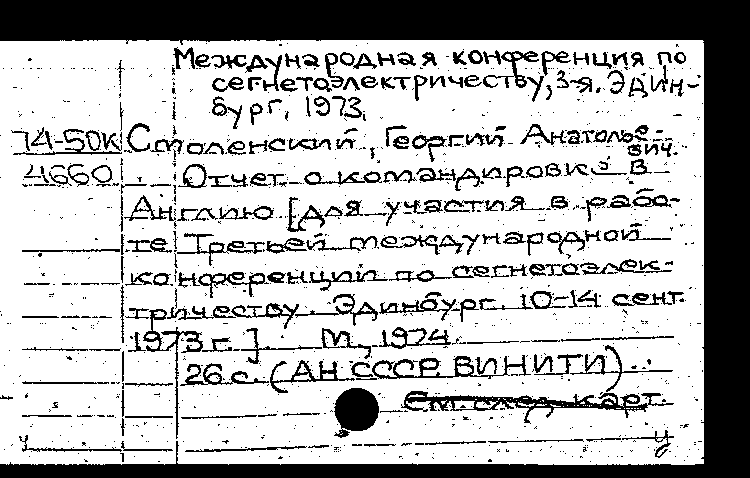 Международная конференция по
сегнетоэлектричеству, 3-я. Эдин-
бург, 1973.
74-50К Смоленский, Георгий Анатолье-
вич.
4660 Отчет о командировке в
Англию [для участия в рабо-
те Третьей международной
конференции по сегнетоэлек-
тричеству. Эдинбург. 10-14 сент.
1973 г.]. М., 1974.
26 с. (АН СССР. ВИНИТИ)..
См. след. карт.
ч у